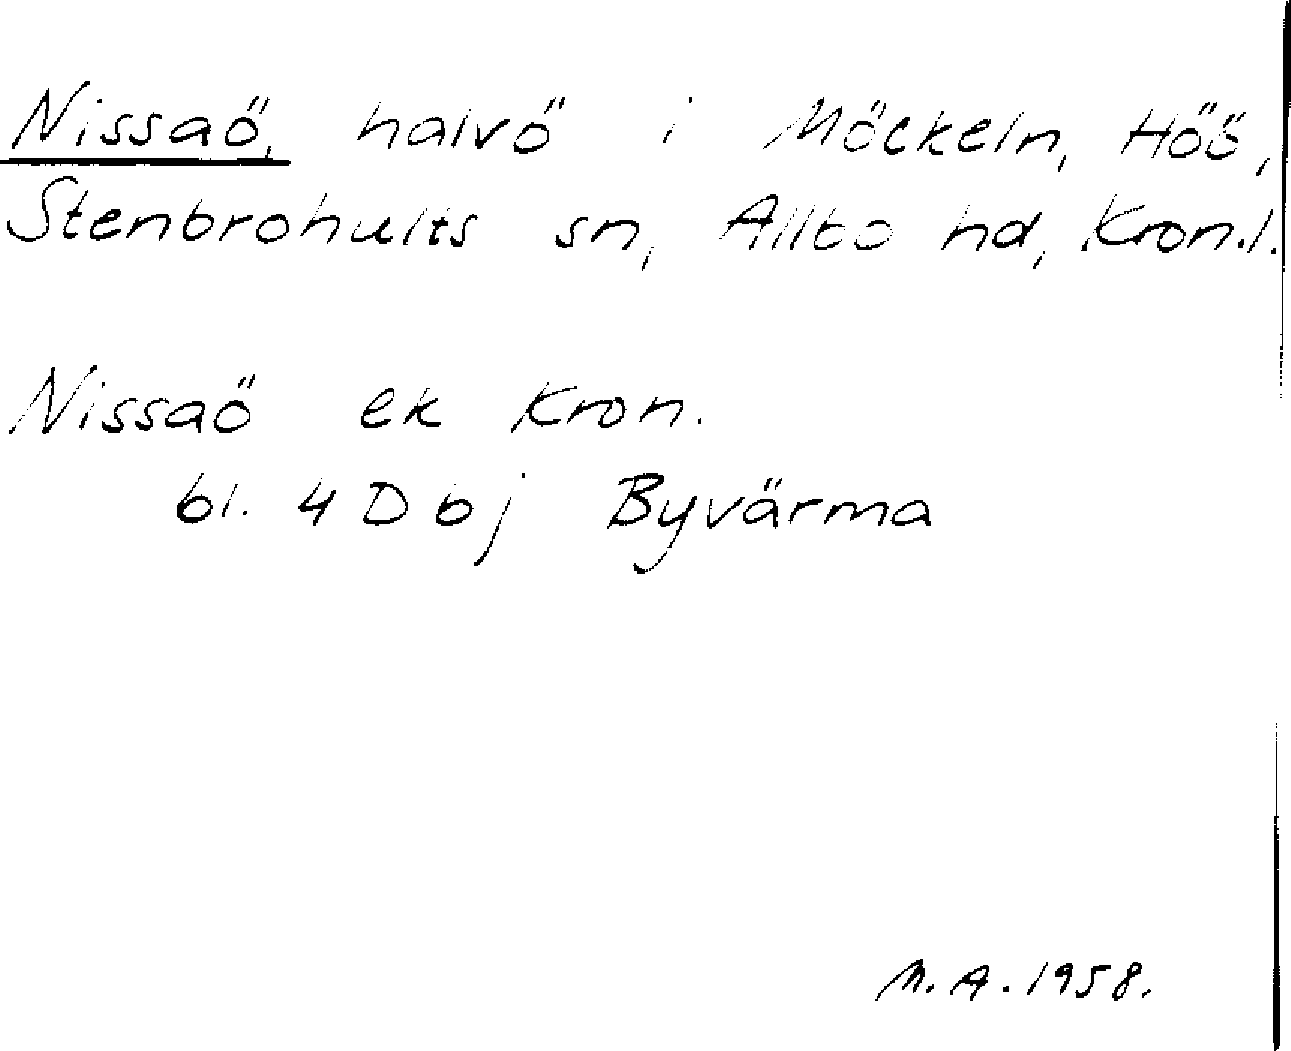 Nissaö, halvö i Möckeln, Höö,
Stenbrohults sn, Allbo hd, Kron.l.
Nissaö ek Kron.
bl. 4 D b j Byvärma
M.A. 1958.